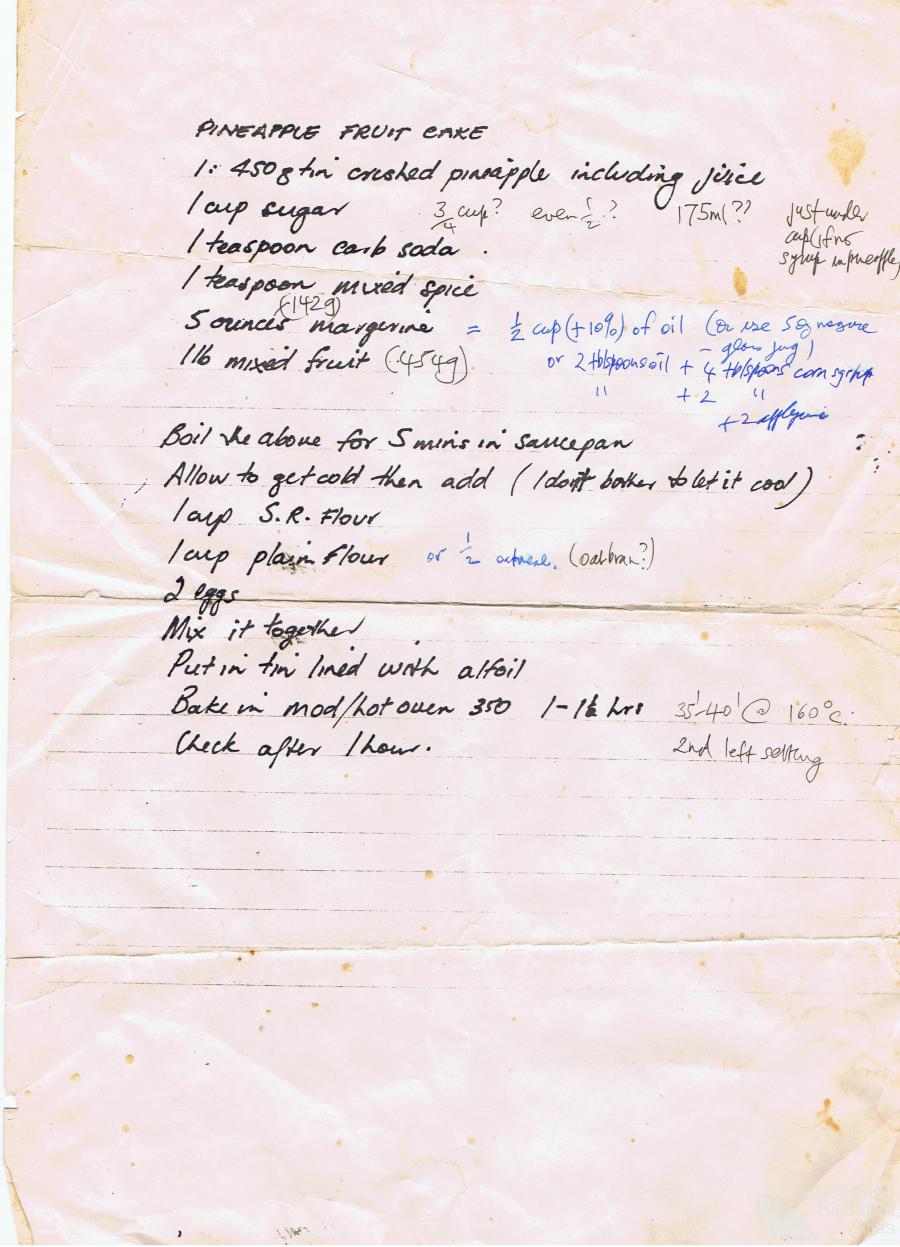 PINEAPPLE FRUIT CAKE
1: 450g tin crushed pineapple including juice
1 cup sugar 3/4 cup? even 1/2? 175ml?? just under
cup (if no
syrup in pineapple
1 teaspoon carb soda.
1 teaspoon mixed spice
(142g)
5 ounces margerine = 1/2 cup (+10%) of oil (or use 5oz measure
- glass jug)
1 lb mixed fruit (454g) or 2 tblspoons oil + 4 tblspoons corn syrup
" + 2 "
+ 2 apple
Boil the above for 5 mins in saucepan
Allow to get cold then add (I don't bother to let it cool)
1 cup S.R. Flour
1 cup plain flour or 1/2 oatmeal. (oatbran?)
2 eggs
Mix it together
Put in tin lined with alfoil
Bake in mod/hot oven 350 1-1½ hrs 35'-40' @ 160°c.
Check after 1 hour. 2nd left setting
Queensland
Historical
Atlas